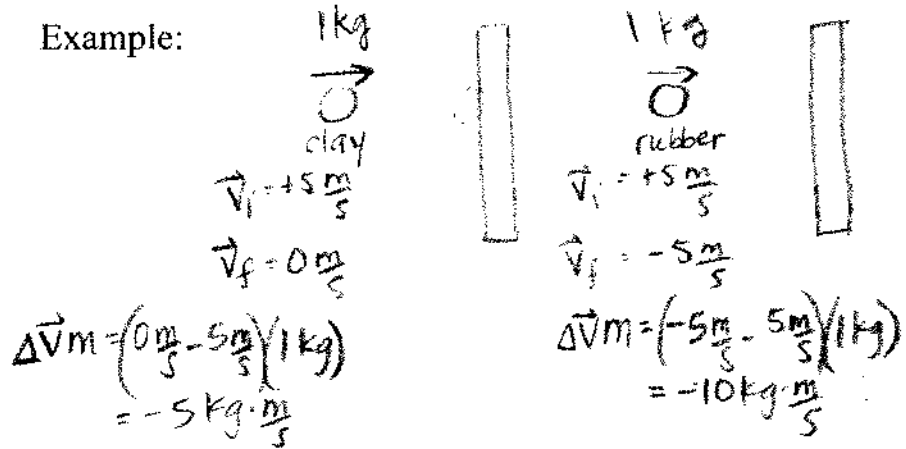 Example:
1kg
clay
v⃗ᵢ = +5 m/s
v⃗f = 0 m/s
Δv⃗m = (0 m/s - 5 m/s)(1kg)
= -5 kg·m/s
1kg
rubber
v⃗ᵢ = +5 m/s
v⃗f = -5 m/s
Δv⃗m = (-5 m/s - 5 m/s)(1kg)
= -10 kg·m/s